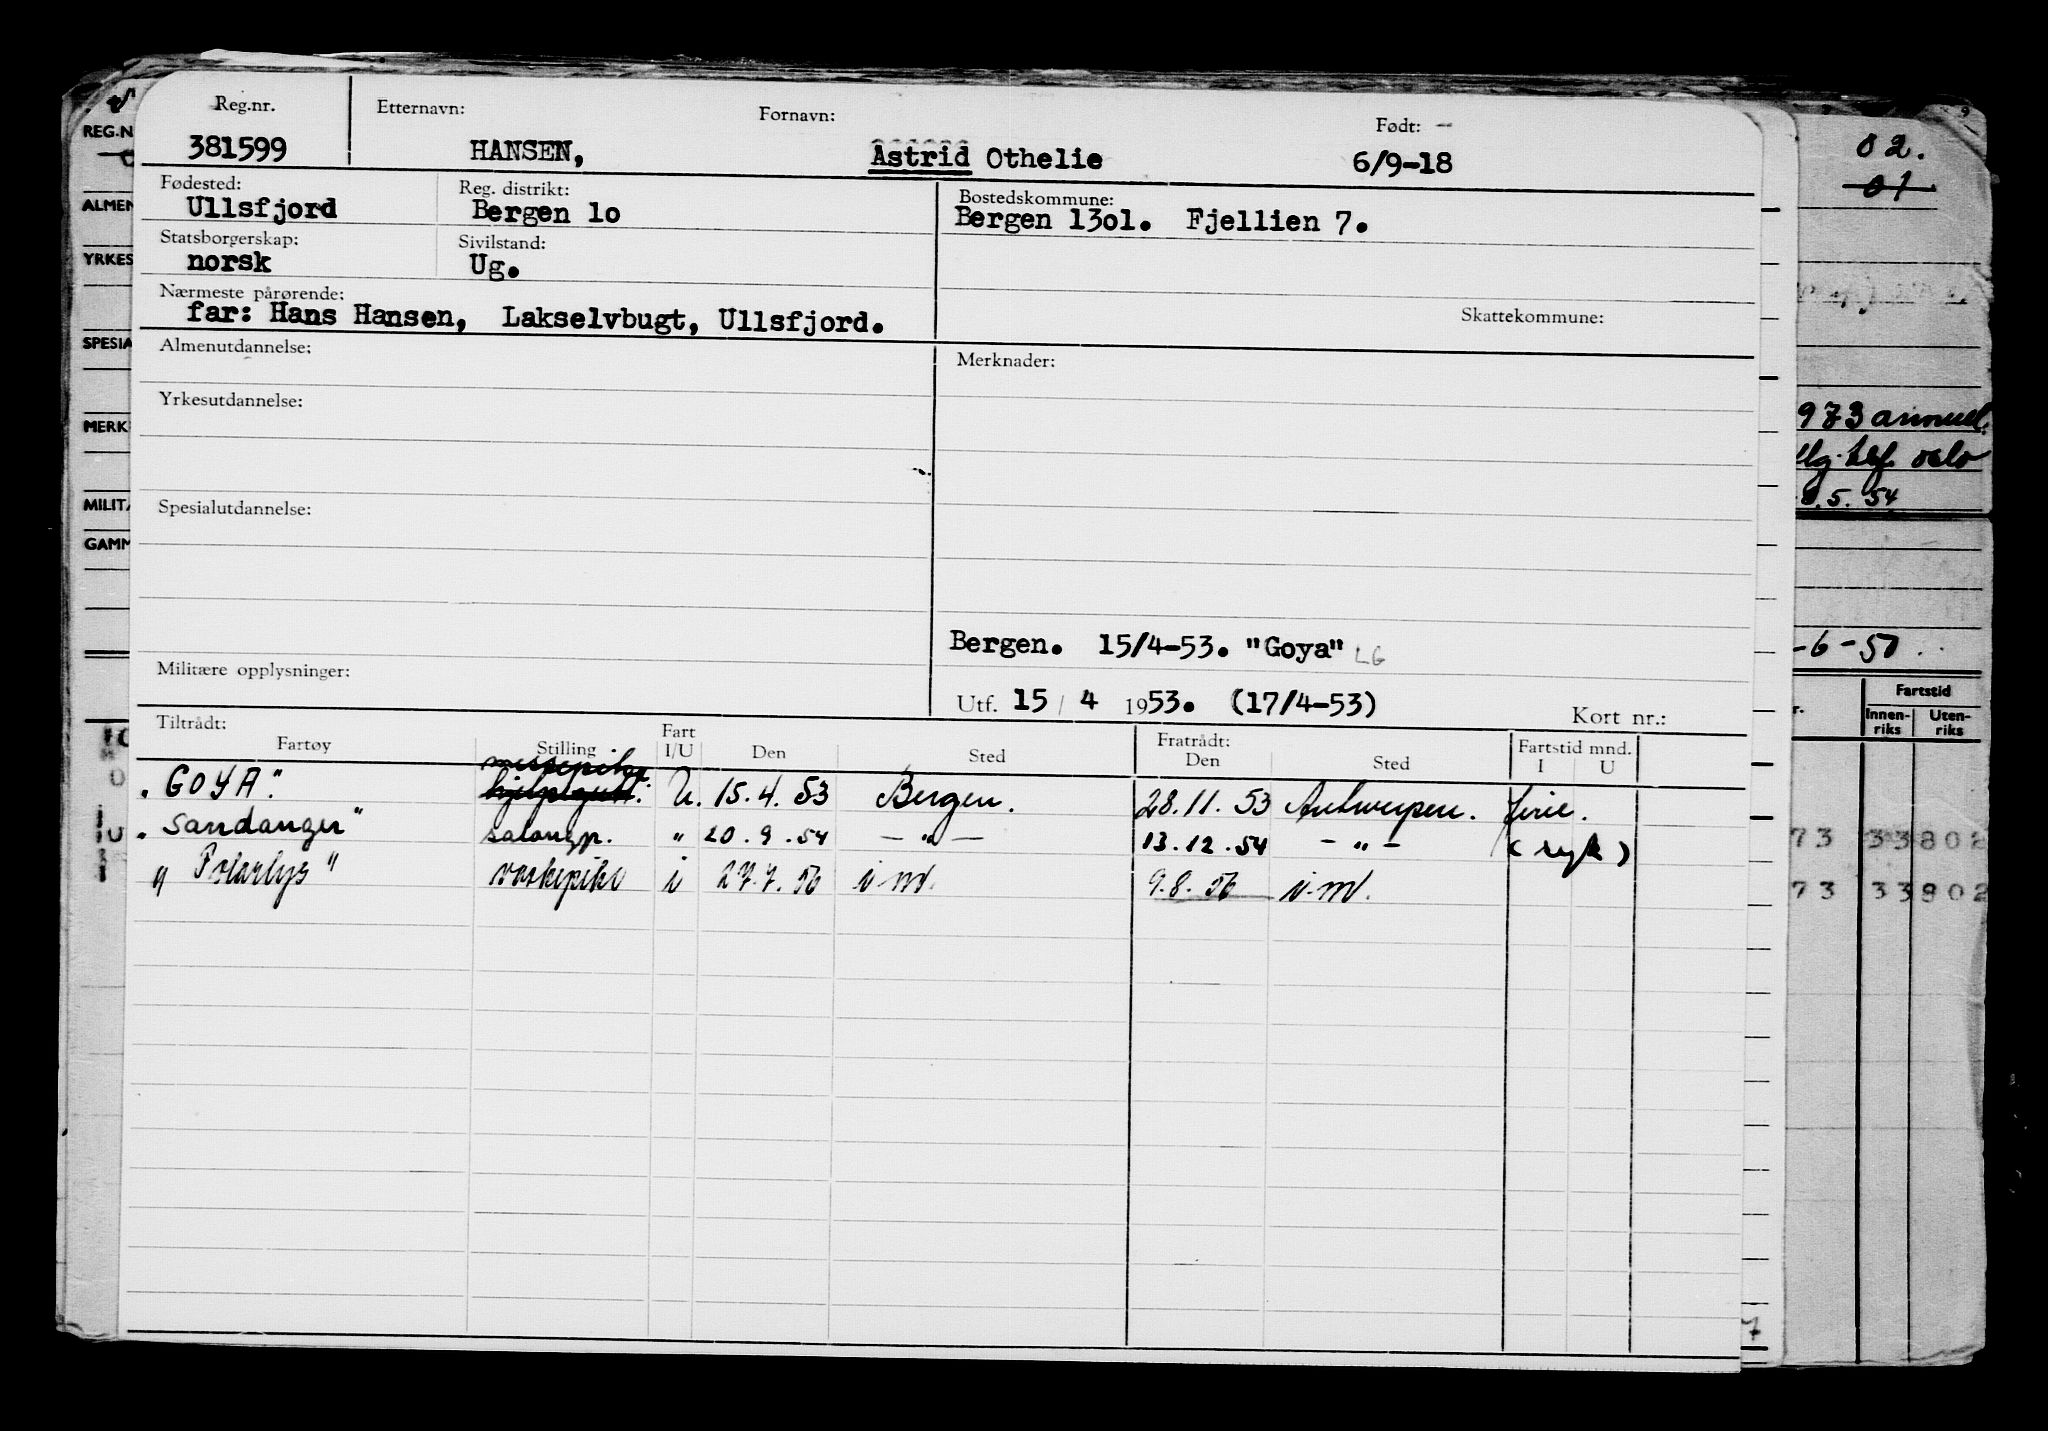 Reg.nr. Etternavn: Fornavn: Født:
381599 HANSEN, Astrid Othelie 6/9-18
Fødested: Reg. distrikt: Bostedskommune:
Ullsfjord Bergen 1o Bergen 13o1. Fjellien 7.
Statsborgerskap: Sivilstand:
norsk Ug.
Nærmeste pårørende: Skattekommune:
far: Hans Hansen, Lakselvbugt, Ullsfjord.
Almenutdannelse: Merknader:
Yrkesutdannelse:
Spesialutdannelse:
Bergen. 15/4-53. "Goya" LG
Militære opplysninger:
Utf. 15 / 4 1953. (17/4-53) Kort nr.:
Tiltrådt: Fart Fratrådt: Fartstid mnd.
Fartøy Stilling I/U Den Sted Den Sted I U
messepike
"GOYA" U. 15.4.53 Bergen. 28.11.53 Antwerpen. ferie.
"Sandanger" salongp. " 20.9.54 — " — 13.12.54 — " — (syk)
"Polarlys" vaskepike i 27.7.56 i.m. 9.8.56 i.m.
REG.N
ALMEN
YRKES
SPESIA
MERK
MILITÆ
GAMM
02.
01
973 annul.
oslo
.5.54
-6-57
Fartstid
Innen-riks Uten-riks
73 33802
73 33802